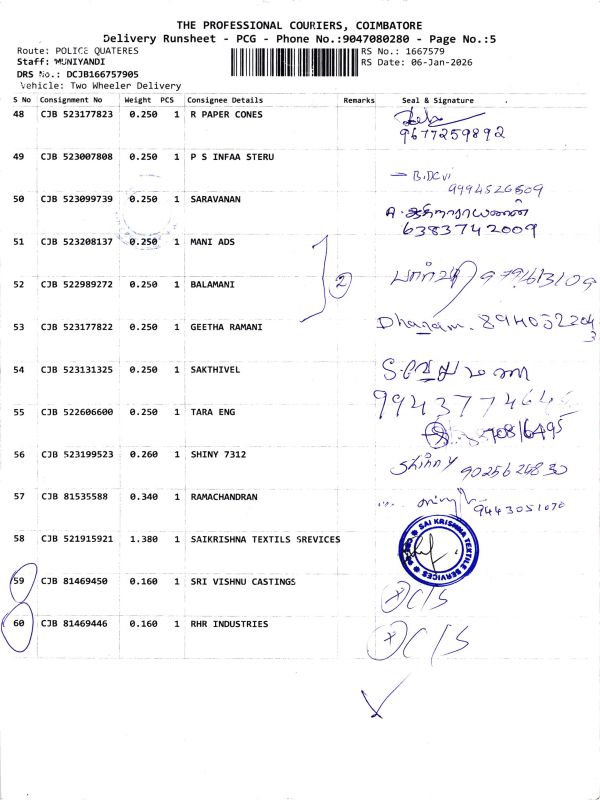 THE PROFESSIONAL COURIERS, COIMBATORE
Delivery Runsheet - PCG - Phone No.:9047080280 - Page No.:5
Route: POLICE QUATERES
RS No.: 1667579
Staff: MUNIYANDI
RS Date: 06-Jan-2026
DRS No.: DCJB166757905
Vehicle: Two Wheeler Delivery
S No Consignment No Weight PCS Consignee Details Remarks Seal & Signature
48 CJB 523177823 0.250 1 R PAPER CONES
9677259892
49 CJB 523007808 0.250 1 P S INFAA STERU
9994526509
50 CJB 523099739 0.250 1 SARAVANAN
6383742009
51 CJB 523208137 0.250 1 MANI ADS
2
52 CJB 522989272 0.250 1 BALAMANI
53 CJB 523177822 0.250 1 GEETHA RAMANI
Dhanam.
54 CJB 523131325 0.250 1 SAKTHIVEL
55 CJB 522606600 0.250 1 TARA ENG
56 CJB 523199523 0.260 1 SHINY 7312
Shinny
57 CJB 81535588 0.340 1 RAMACHANDRAN
58 CJB 521915921 1.380 1 SAIKRISHNA TEXTILS SREVICES
SAI KRISHNA TEXTILE SERVICES
59 CJB 81469450 0.160 1 SRI VISHNU CASTINGS
C/S
60 CJB 81469446 0.160 1 RHR INDUSTRIES
C/S